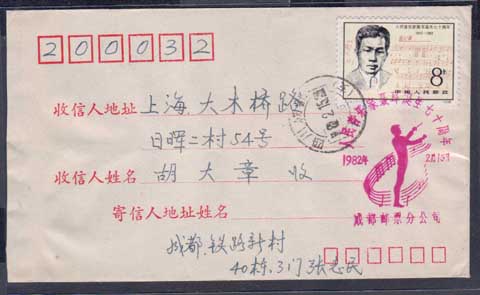 200032
人民音乐家聂耳诞生七十周年
1912-1982
8分
中国人民邮政
收信人地址 上海.大木桥路
日晖二村54号
收信人姓名 胡大章 收
寄信人地址姓名
成都.铁路新村
40栋.3门 张志民
四川
人民音乐家聂耳诞生七十周年
1982年 2月15日
成都邮票分公司